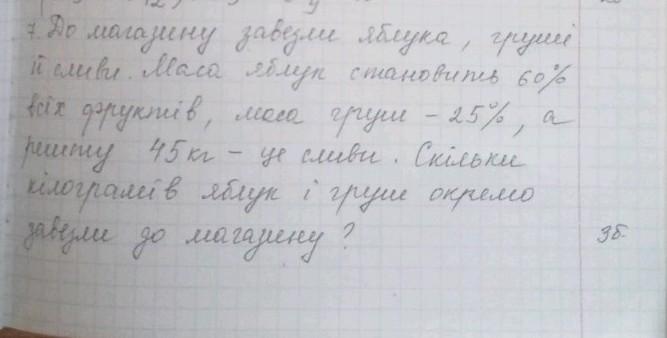 7. До магазину завезли яблука, груші
й сливи. Маса яблук становить 60%
всіх фруктів, маса груш - 25%, а
решту 45 кг - це сливи. Скільки
кілограмів яблук і груш окремо
завезли до магазину? 3б.